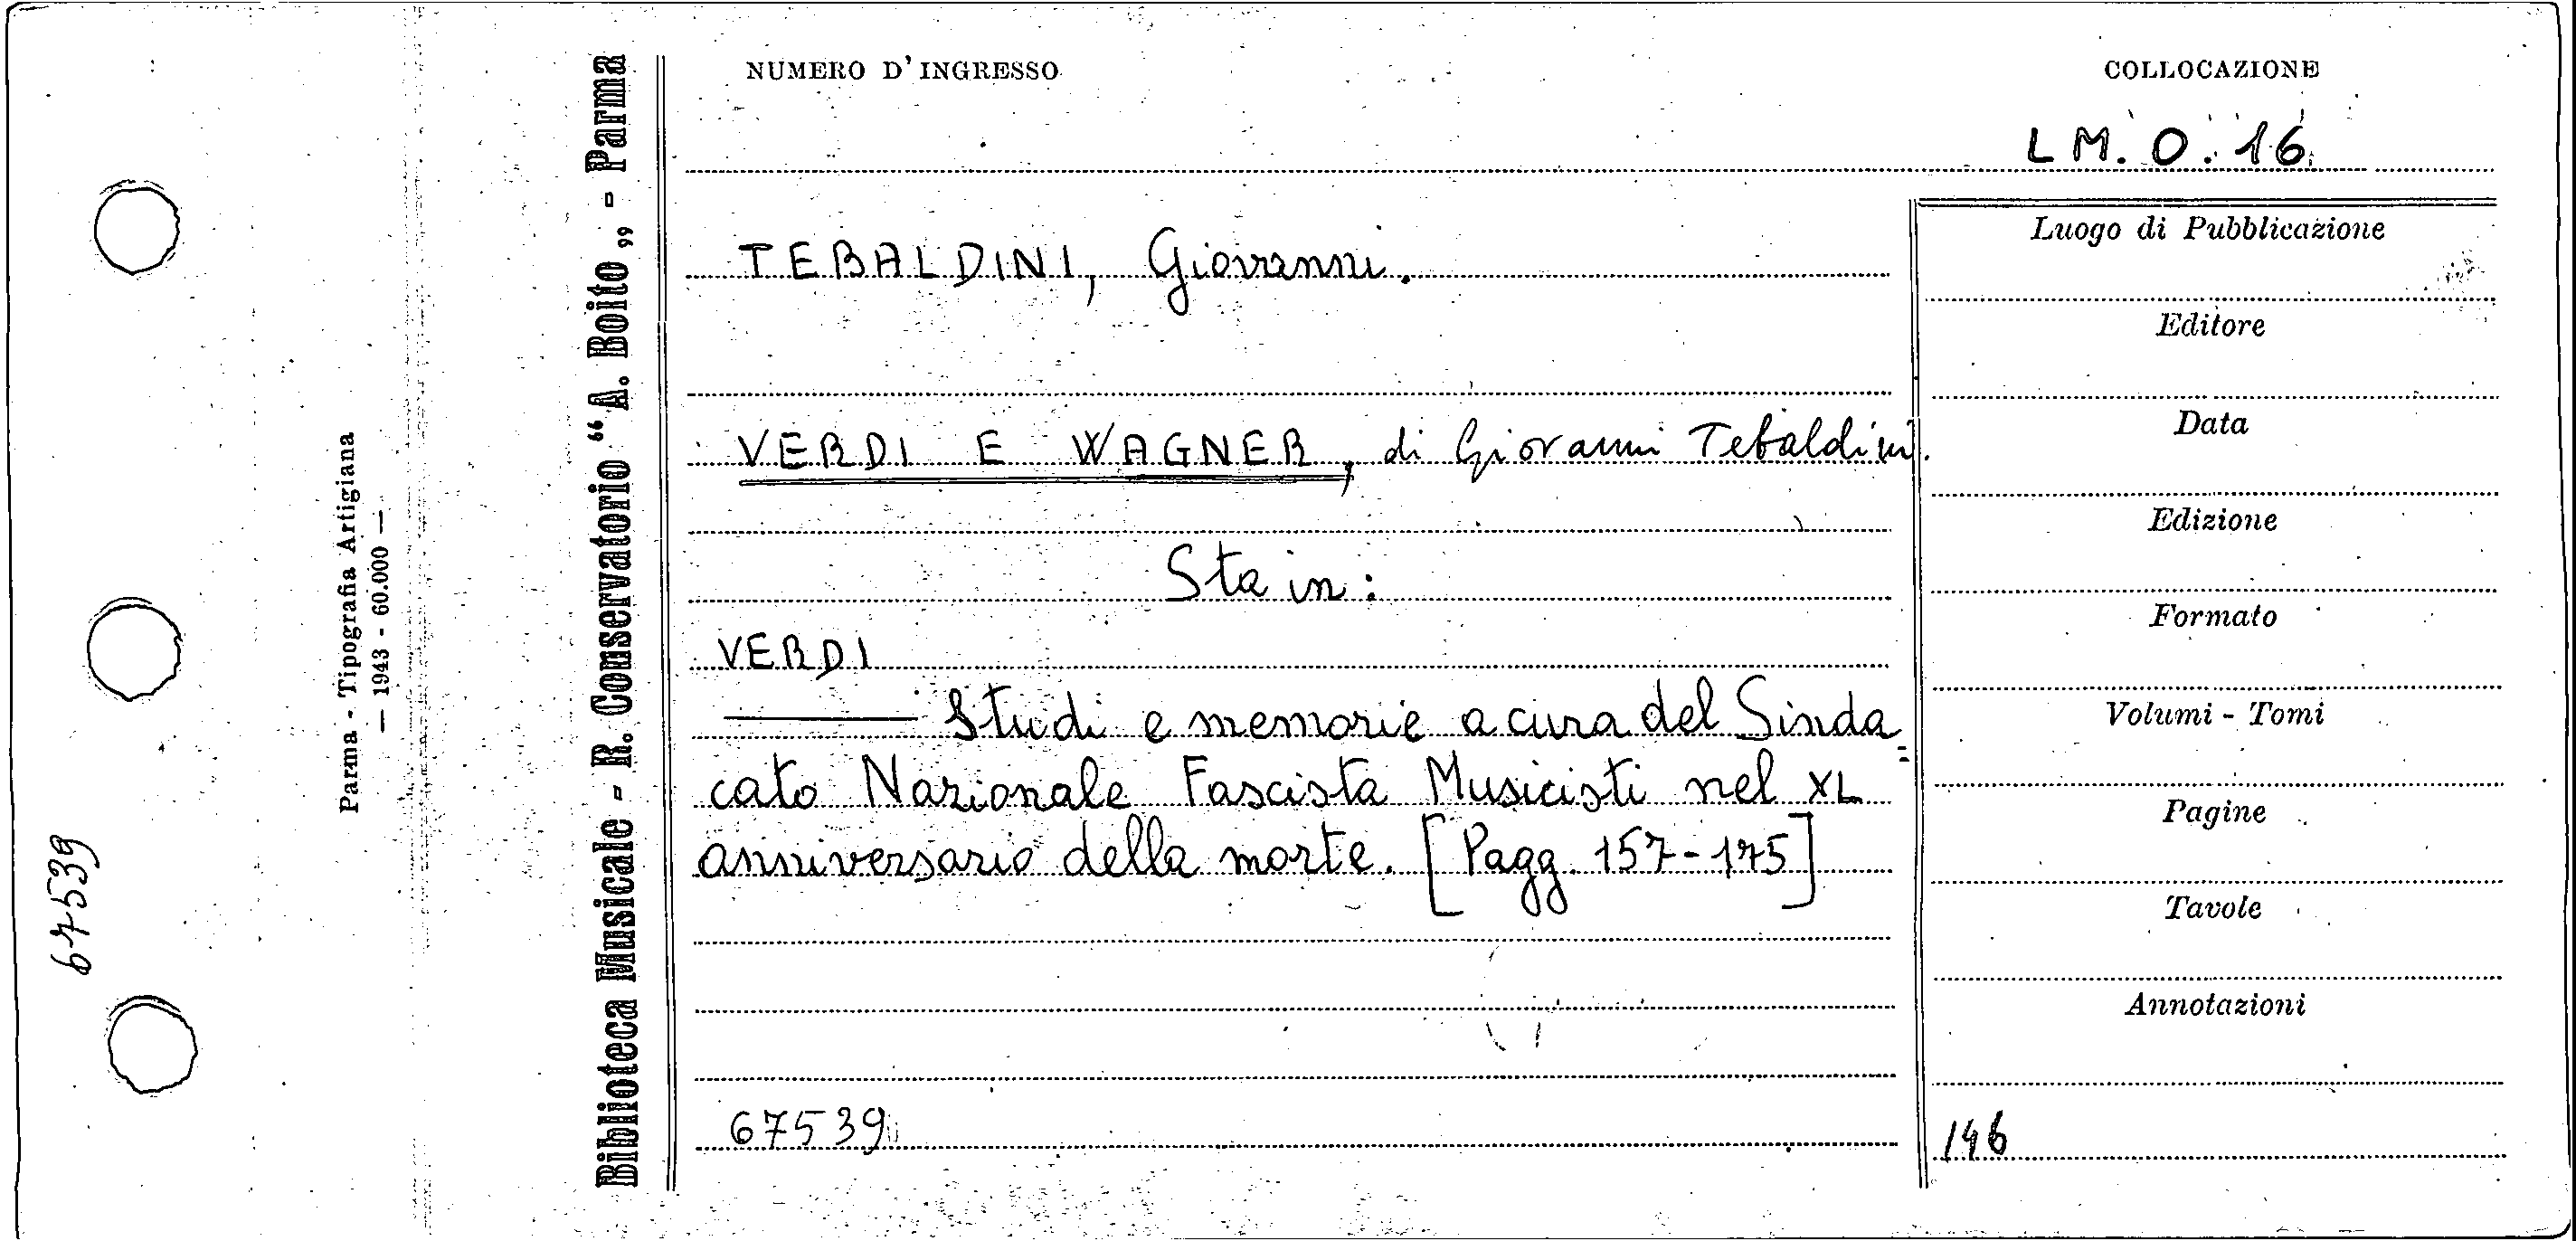 67539
Parma - Tipografia Artigiana
— 1943 - 60.000 —
Biblioteca Musicale - R. Conservatorio “A. Boito„ - Parma
NUMERO D'INGRESSO
COLLOCAZIONE
LM. O. 16.
TEBALDINI, Giovanni.
VERDI E WAGNER, di Giovanni Tebaldini.
Sta in:
VERDI
——— Studi e memorie a cura del Sinda=
cato Nazionale Fascista Musicisti nel XL
anniversario della morte. [Pagg. 157-175]
67539
Luogo di Pubblicazione
Editore
Data
Edizione
Formato
Volumi - Tomi
Pagine
Tavole
Annotazioni
146